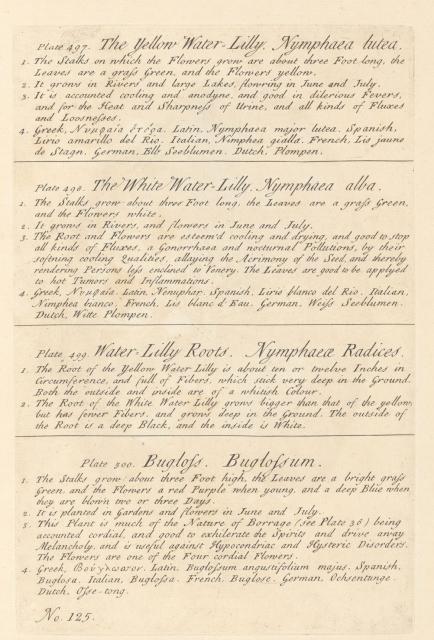 Plate 497. The Yellow Water-Lilly. Nymphaea lutea.
1. The Stalks on which the Flowers grow are about three Foot long, the
Leaves are a graſs Green, and the Flowers yellow.
2. It grows in Rivers and large Lakes, flowring in June and July.
3. It is accounted cooling and anodyne, and good in dilerious Fevers,
and for the Heat and Sharpneſs of Urine, and all kinds of Fluxes
and Looseneſses.
4. Greek, Νυμφαία Latin, Nymphaea major lutea. Spanish,
Lirio amarillo del Rio. Italian, Nimphea gialla. French, Lis jaune
de Stagn. German, Elb Seeblumen. Dutch, Plompen.
Plate 498. The White Water-Lilly. Nymphaea alba.
1. The Stalks grow about three Foot long, the Leaves are a graſs Green,
and the Flowers white.
2. It grows in Rivers, and flowers in June and July.
3. The Root and Flowers are esteem'd cooling and drying, and good to stop
all kinds of Fluxes, a Gonorrhaea and nocturnal Pollutions, by their
softning cooling Qualities, allaying the Acrimony of the Seed, and thereby
rendering Persons leſs enclined to Venery. The Leaves are good to be applyed
to hot Tumors and Inflammations.
4. Greek, Νυμφαία. Latin, Nenuphar. Spanish, Lirio blanco del Rio. Italian,
Nimphea bianco. French, Lis blanc d'Eau. German, Weiſs Seeblumen.
Dutch, Witte Plompen.
Plate 499. Water-Lilly Roots. Nymphaeæ Radices.
1. The Root of the Yellow Water Lilly is about ten or twelve Inches in
Circumference, and full of Fibers, which stick very deep in the Ground.
Both the outside and inside are of a whitish Colour.
2. The Root of the White Water Lilly grows bigger than that of the yellow,
but has fewer Fibers, and grows deep in the Ground. The outside of
the Root is a deep Black, and the inside is White.
Plate 500. Bugloſs. Bugloſsum.
1. The Stalks grow about three Foot high, the Leaves are a bright graſs
Green, and the Flowers a red Purple when young, and a deep Blue when
they are blown two or three Days.
2. It is planted in Gardens and flowers in June and July.
3. This Plant is much of the Nature of Borrage (see Plate 36) being
accounted cordial, and good to exhilerate the Spirits and drive away
Melancholy, and is useful against Hypocondriac and Hysteric Disorders.
The Flowers are one of the Four cordial Flowers.
4. Greek, Βούγλωσσον. Latin, Bugloſsum angustifolium majus. Spanish,
Buglosa. Italian, Bugloſsa. French, Buglose. German, Ochsentunge.
Dutch, Oſse-tong.
No. 125.